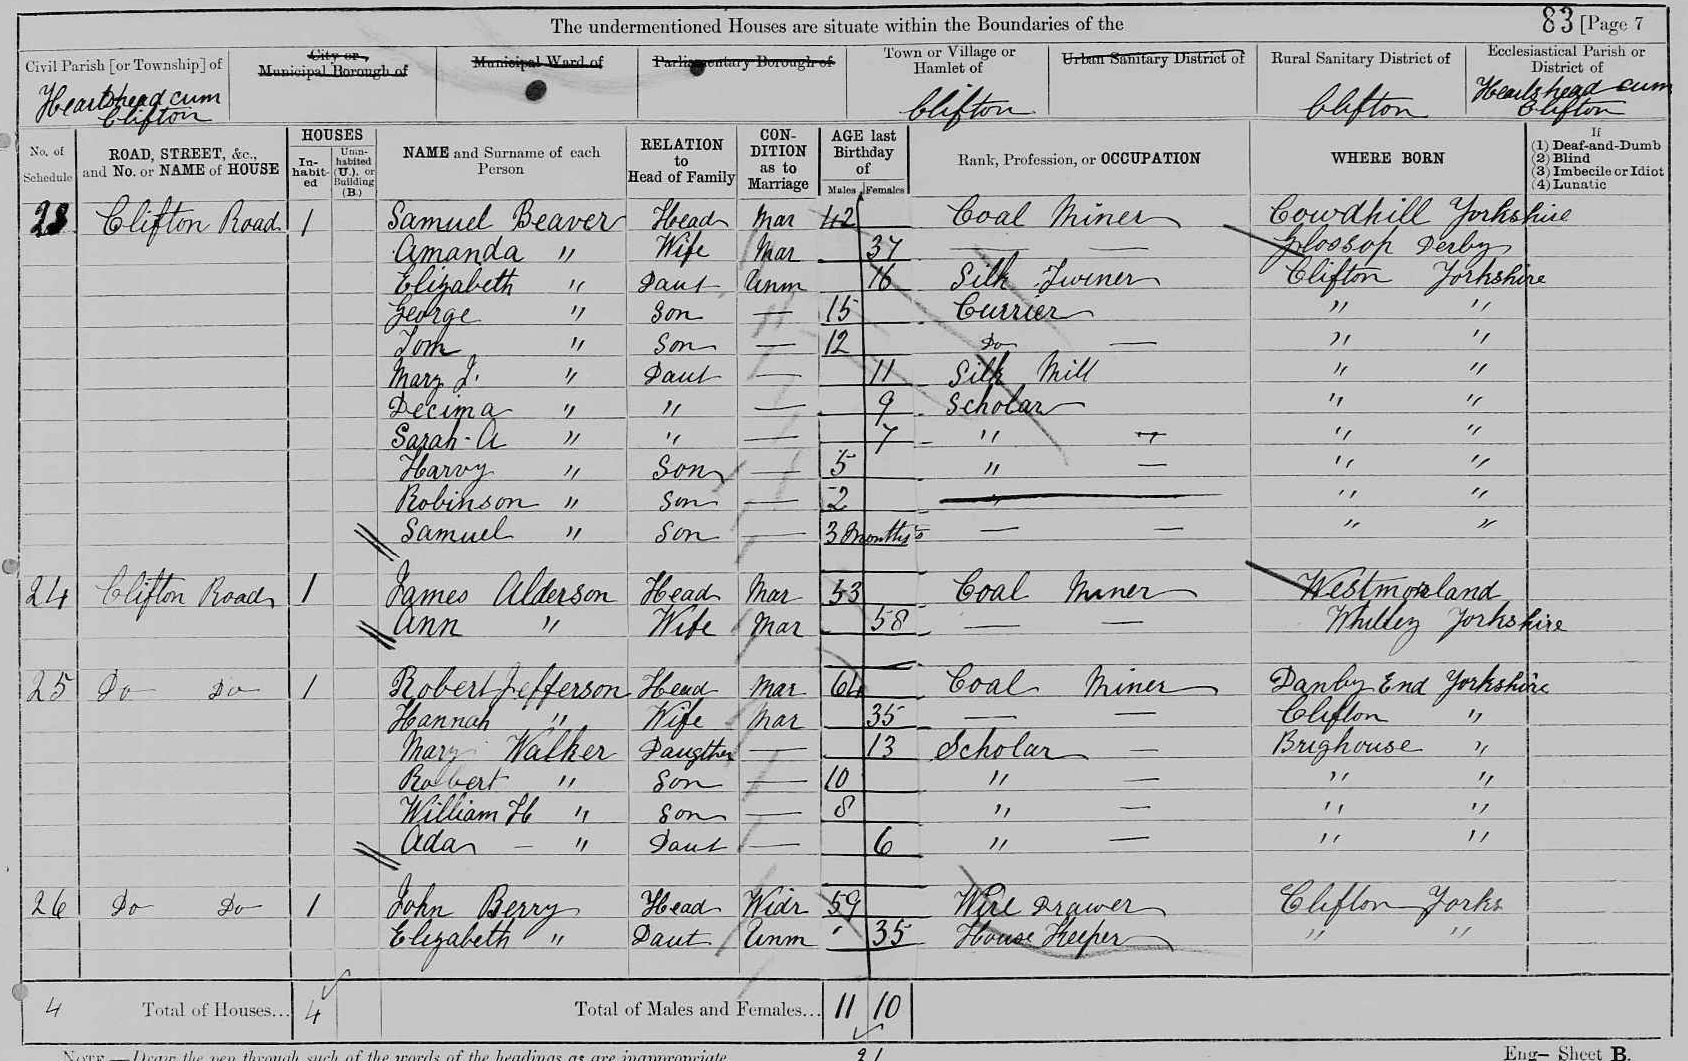 The undermentioned Houses are situate within the Boundaries of the 83 [Page 7
Civil Parish [or Township] of City or Municipal Borough of Municipal Ward of Parliamentary Borough of Town or Village or Hamlet of Urban Sanitary District of Rural Sanitary District of Ecclesiastical Parish or District of
Heartshead cum Clifton Clifton Clifton Heartshead cum Clifton
No. of Schedule ROAD, STREET, &c., and No. or NAME of HOUSE HOUSES In-habit-ed Unin-habited (U.), or Building (B.) NAME and Surname of each Person RELATION to Head of Family CON-DITION as to Marriage AGE last Birthday of Males Females Rank, Profession, or OCCUPATION WHERE BORN If (1) Deaf-and-Dumb (2) Blind (3) Imbecile or Idiot (4) Lunatic
23 Clifton Road 1 Samuel Beaver Head Mar 42 Coal Miner Cowdhill Yorkshire
Amanda " Wife Mar 37 — — Glossop Derby
Elizabeth " Daut Unm 16 Silk Twiner Clifton Yorkshire
George " Son — 15 Currier " "
Tom " Son — 12 Do — " "
Mary J. " Daut — 11 Silk Mill " "
Decima " " — 9 Scholar " "
Sarah A " " — 7 " " "
Harvy " Son — 5 " — " "
Robinson " Son — 2 " " "
Samuel " Son — 3 Months — — " "
24 Clifton Road 1 James Alderson Head Mar 53 Coal Miner Westmorland
Ann " Wife Mar 58 — — Whitley Yorkshire
25 Do Do 1 Robert Jefferson Head Mar 64 Coal Miner Danby End Yorkshire
Hannah " Wife Mar 35 — — Clifton "
Mary Walker Daugther — 13 Scholar — Brighouse "
Robert " Son — 10 " — " "
William H " Son — 8 " — " "
Ada — " Daut — 6 " — " "
26 Do Do 1 John Berry Head Widr 59 Wire Drawer Clifton Yorks
Elizabeth " Daut Unm 35 House Keeper " "
4 Total of Houses... 4 Total of Males and Females... 11 10
NOTE.—Draw the pen through such of the words of the headings as are inappropriate. 21 Eng— Sheet B.